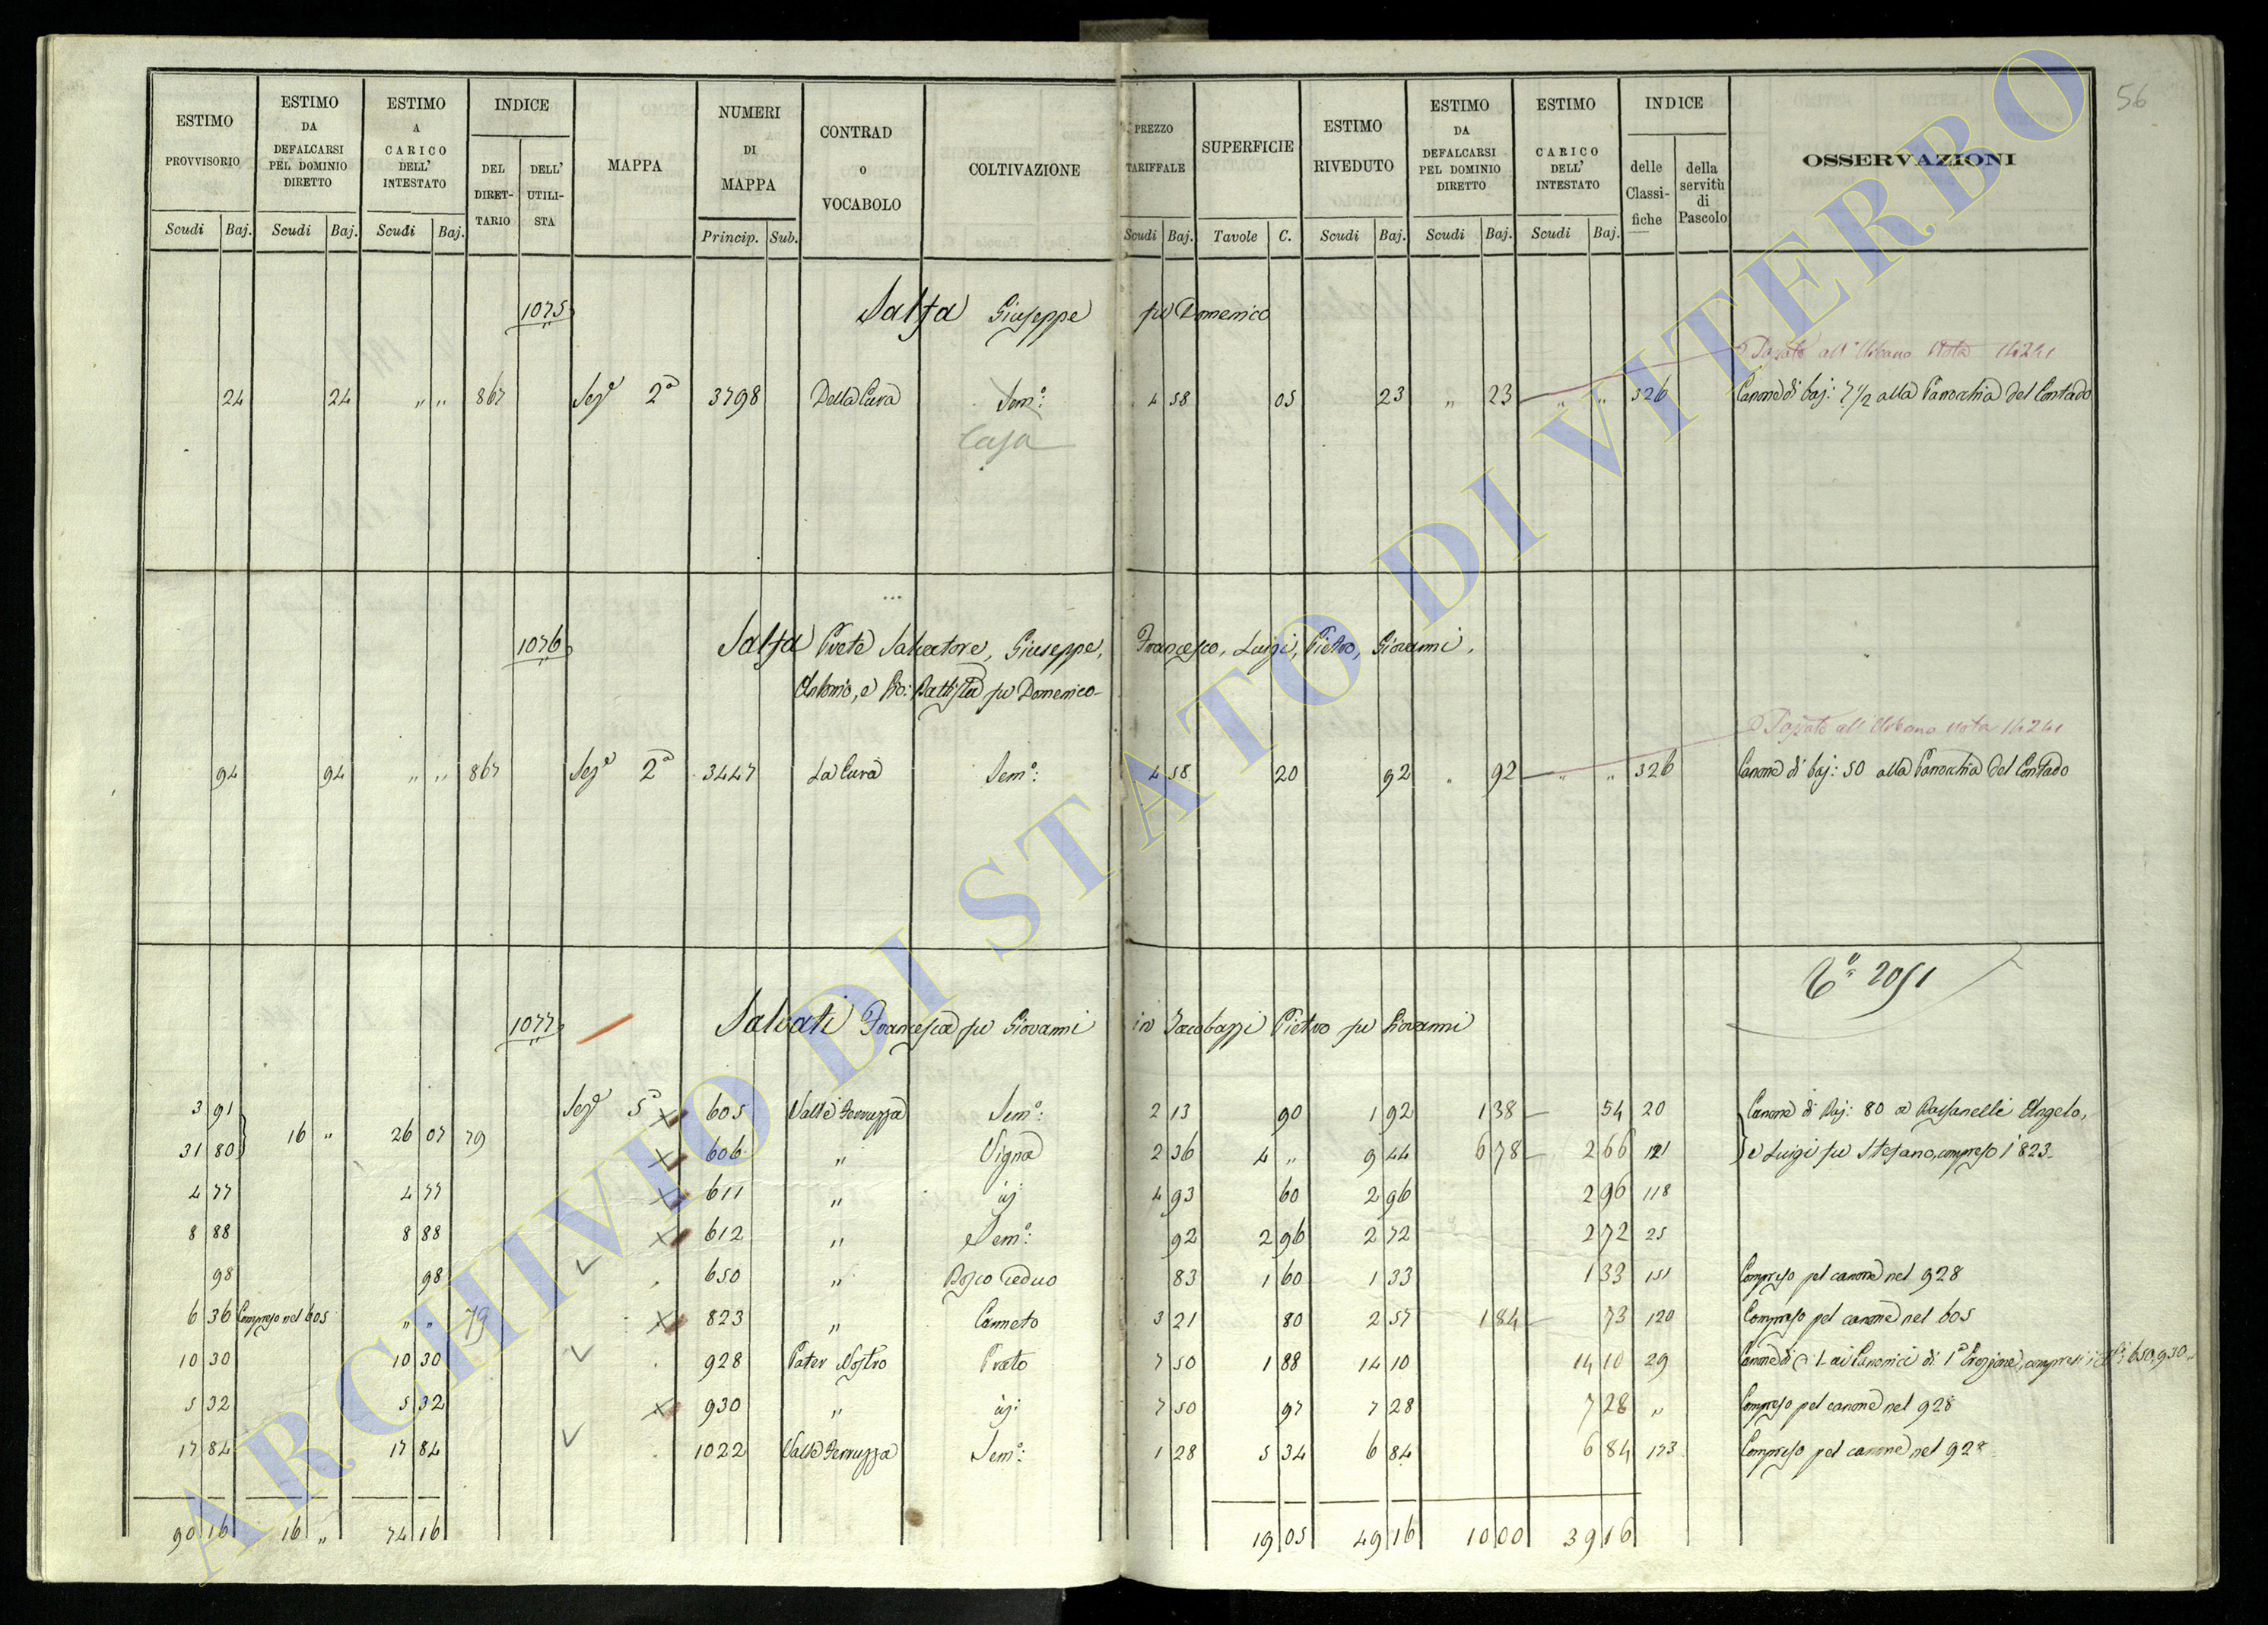 56
ESTIMO PROVVISORIO | ESTIMO DA DEFALCARSI PEL DOMINIO DIRETTO | ESTIMO A CARICO DELL' INTESTATO | INDICE DEL DIRETTARIO | DELL' UTILISTA | MAPPA | NUMERI DI MAPPA | CONTRAD O VOCABOLO | COLTIVAZIONE | PREZZO TARIFFALE | SUPERFICIE | ESTIMO RIVEDUTO | ESTIMO DA DEFALCARSI PEL DOMINIO DIRETTO | ESTIMO CARICO DELL' INTESTATO | INDICE delle Classifiche | della servitù di Pascolo | OSSERVAZIONI
Scudi | Baj. | Scudi | Baj. | Scudi | Baj. | Princip. | Sub. | Scudi | Baj. | Tavole | C. | Scudi | Baj. | Scudi | Baj. | Scudi | Baj.
1075 Salta Giuseppe fu Domenico
Passato all'Urbano Nota
24 | 24 | " " | 867 | Seze 2a | 3798 | Della Cura | Semo: | 4 58 | 05 | 23 | " 23 | " " | 326 | Canone di baj: 7 1/2 alla Parrochia del Contado
Casa
1076 Salta Prete Salvatore, Giuseppe, Francesco, Luigi, Pietro, Giovanni,
Antonio, e Gio: Battista fu Domenico
Passato all'Urbano Nota
94 | 94 | " " | 867 | Seze 2a | 3447 | La Cura | Semo: | 4 58 | 20 | 92 | " 92 | " " | 326 | Canone di baj: 50 alla Parrochia del Contado
2051
1077 Salvati Francesca fu Giovanni in Jacobazzi Pietro fu Giovanni
3 91 | 16 " | 26 07 | 79 | Seze 5a | 605 | Valle | Semo: | 2 13 | 90 | 1 92 | 1 38 | 54 | 20 | Canone di Baj: 80 a Angelo,
31 80 | 606 | " | Vigna | 2 36 | 4 " | 9 44 | 6 78 | 2 66 | 121 | e Luigi fu Stefano, compreso l'823
4 77 | 4 77 | 611 | " | 4 93 | 60 | 2 96 | 2 96 | 118
8 88 | 8 88 | 612 | " | Semo: | 92 | 2 96 | 2 72 | 2 72 | 25
98 | 98 | 650 | " | Bosco ceduo | 83 | 1 60 | 1 33 | 1 33 | 151 | Compreso pel canone nel 928
6 36 | Compreso nel 605 | " " | 79 | 823 | " | Canneto | 3 21 | 80 | 2 57 | 1 84 | 73 | 120 | Compreso pel canone nel 605
10 30 | 10 30 | 928 | Pater Nostro | Prato | 7 50 | 1 88 | 14 10 | 14 10 | 29 | Canone di ai Canonici di 1a Erezione, compresi i 650, 930
5 32 | 5 32 | 930 | " | 7 50 | 97 | 7 28 | 7 28 | " | Compreso pel canone nel 928
17 84 | 17 84 | 1022 | Valle | Semo: | 1 28 | 5 34 | 6 84 | 6 84 | 173 | Compreso pel canone nel 928
90 16 | 16 " | 74 16 | 19 05 | 49 16 | 10 00 | 39 16
ARCHIVIO DI STATO DI VITERBO